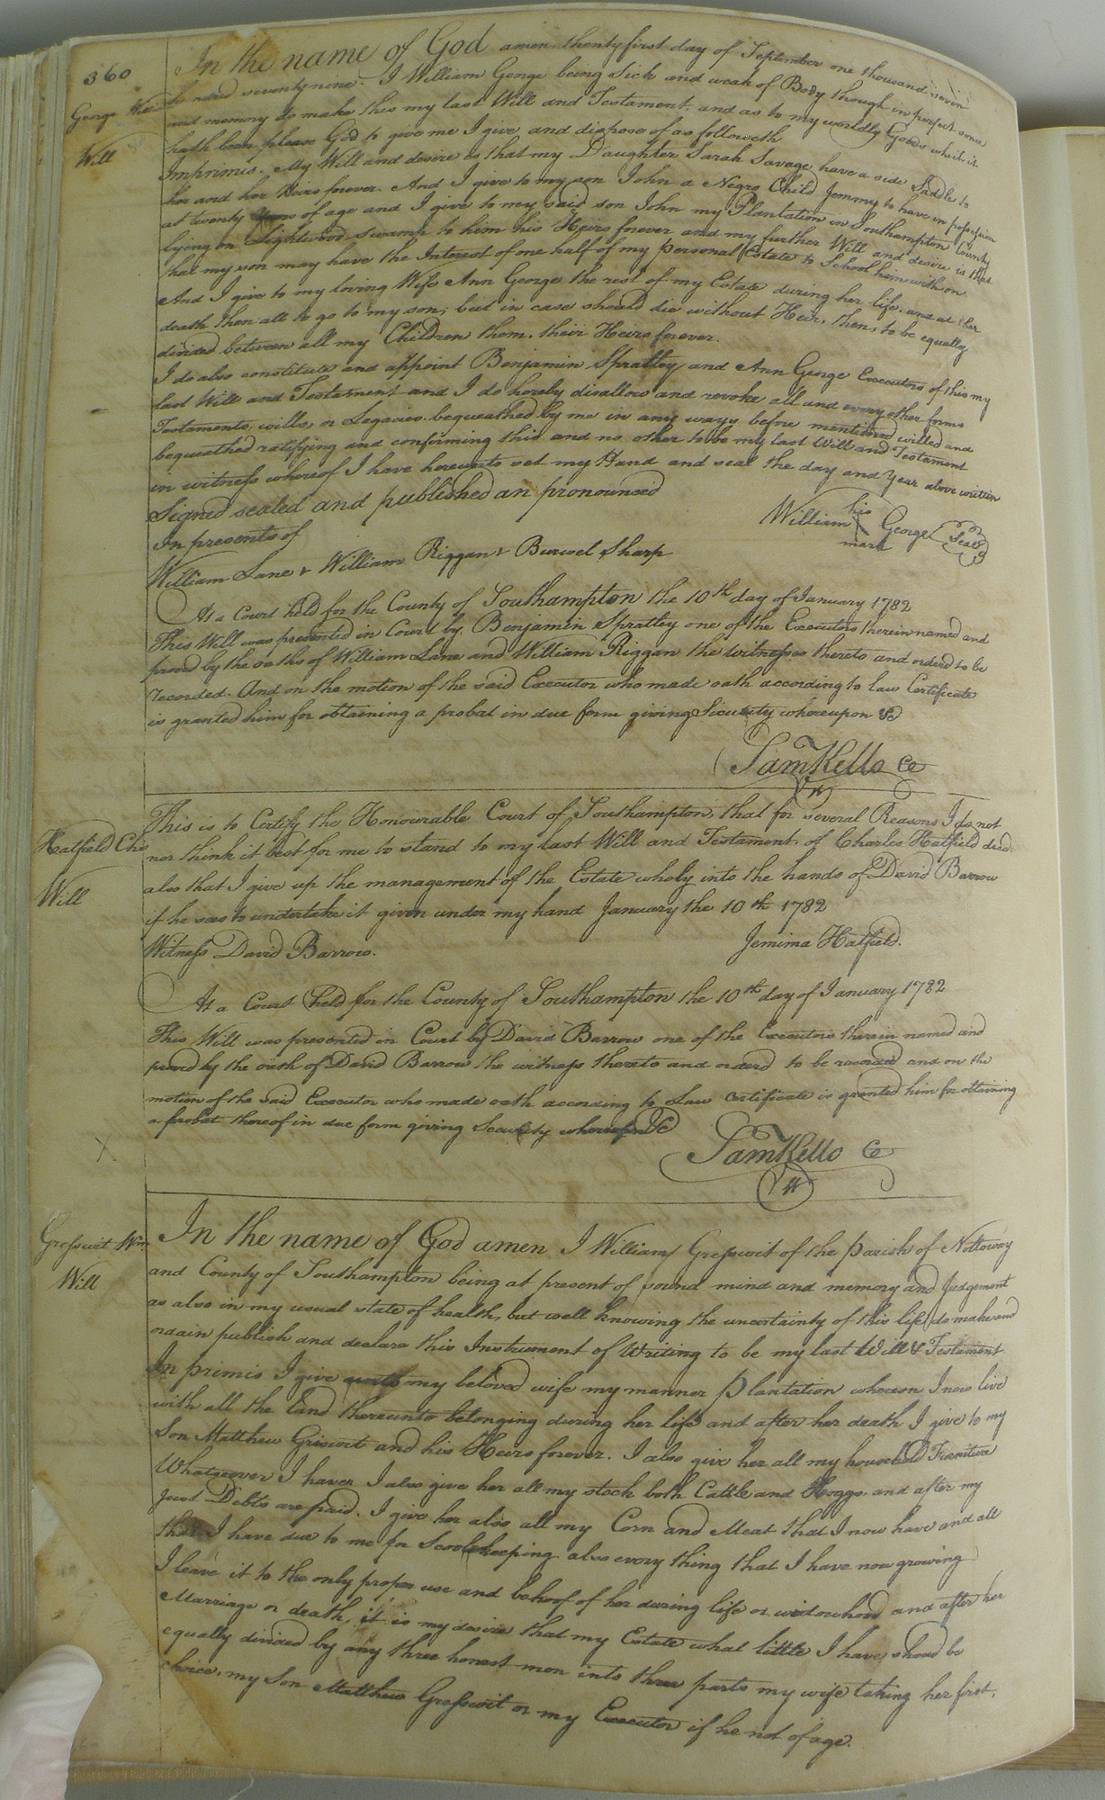 360
George Wm
Will
In the name of God amen thentyfirst day of September one thousand seven
hundred seventynine. I William George being Sick and weak of Body though in perfect sence
and memory do make this my last Will and Testament, and as to my worldly Goods which it
hath been please God to give me I give and dispose of as followeth
Imprimis. My Will and desire is that my Daughter Sarah Savage have a side Saddle to
her and her Heirs forever. And I give to my son John a Negro Child Jemmy to have in possession
at twenty years of age and I give to my said son John my Plantation in Southampton County
lying on Lightwood swamp to him his Heirs forever and my further Will and desire is that
that my son may have the Interest of one half of my personal Estate to School him with on
And I give to my loving Wife Ann George the rest of my Estate during her life and at her
death then all to go to my son; but in case should die without Heir, then to be equally
divided between all my Children them, their Heirs forever.
I do also constitute and appoint Benjamin Spratley and Ann George Executors of this my
last Will and Testament and I do hereby disallow and revoke all and every other forms
Testaments, wills, or Legacies bequeathed by me in any ways before mentioned willed and
bequeathed ratifying and confirming this and no other to be my last Will and Testament
in witness whereof I have hereunto set my Hand and seal the day and Year above written
Signed sealed and published an pronounced
In presents of
his
William George Seal
mark
William Lane + William Riggan + Burwel Sharp
At a Court held for the County of Southampton the 10th day of January 1782
This Will was presented in Court by Benjamin Spratley one of the Executors therein named and
proved by the oaths of William Lane and William Riggan the witnesses thereto and orderd to be
recorded. And on the motion of the said Executor who made oath according to law Certificate
is granted him for obtaining a probat in due form giving Sicurity whereupon &c
Sam Kello Ce
Hatfield Chs
Will
This is to Certify the Honourable Court of Southampton, that for several Reasons I do not
nor think it best for me to stand to my last Will and Testament of Charles Hatfield decd.
also that I give up the management of the Estate wholy into the hands of David Barrow
if he sees to undertake it given under my hand January the 10th 1782
Witness David Barrow.
Jemima Hatfield.
At a Court held for the County of Southampton the 10th day of January 1782
This Will was presented in Court by David Barrow one of the Executors therein named and
proved by the oath of David Barrow the witness thereto and orderd to be recorded and on the
motion of the said Executor who made oath according to Law Certificate is granted him for obtaining
a probat thereof in due form giving Security whereupon &c
Sam Kello Ce
Gresswit Wm
Will
In the name of God amen I William Gresswit of the Parish of Nottoway
and County of Southampton being at present of sound mind and memory and Judgement
as also in my usual state of health, but well knowing the uncertainty of this life, do make and
ordain publish and declare this Instrument of Writing to be my last Will & Testament
In primis I give unto my beloved wife my manner Plantation whereon I now live
with all the Land thereunto belonging during her life and after her death I give to my
Son Matthew Griswit and his Heirs forever. I also give her all my household Furniture
Whatsoever I have. I also give her all my stock both Cattle and Hoggs and after my
Just Debts are paid. I give her also all my Corn and Meat that I now have and all
that I have due to me for Scoolekeeping also every thing that I have now growing
I leave it to the only proper use and behoof of her during life or widowhood and after her
Marriage or death, it is my desire that my Estate what little I have, shoud be
equally divided by any three honest men into three parts my wife taking her first,
choice, my Son Matthew Gresswit or my Executor if he not of age.